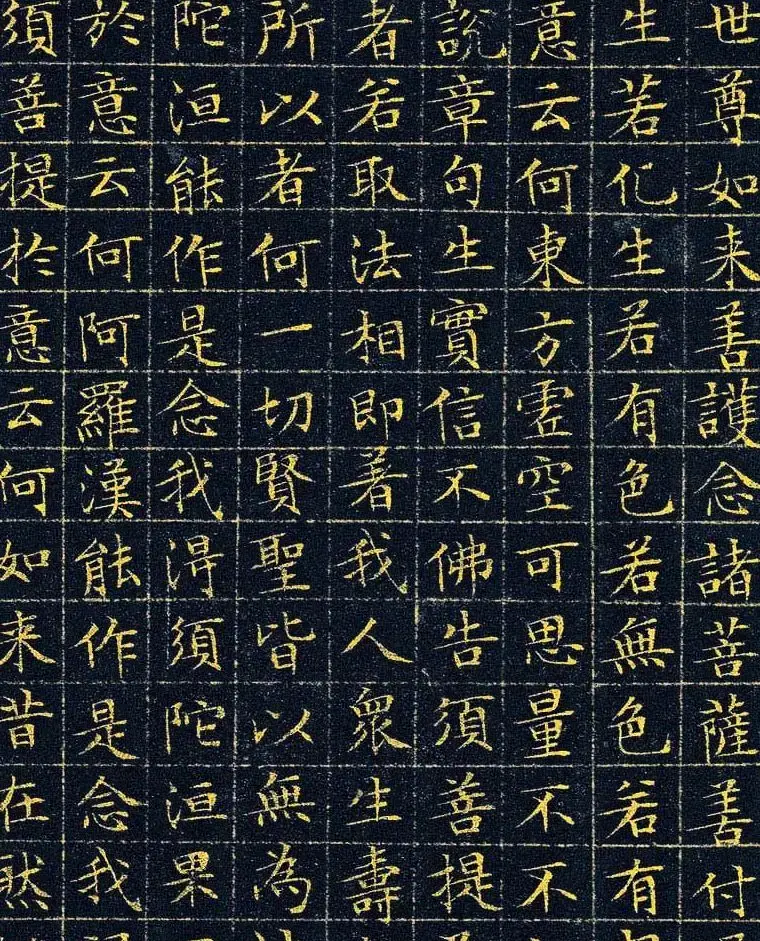 世尊如来善護念諸菩薩善付
生若化生若有色若無色若有
意云何東方虛空可思量不不
說章句生實信不佛告須善提
者若取法相即著我人眾生壽
所以者何一切賢聖皆以無為
陀洹能作是念我得須陀洹果
於意云何阿羅漢能作是念我
須善提於意云何如来昔在然